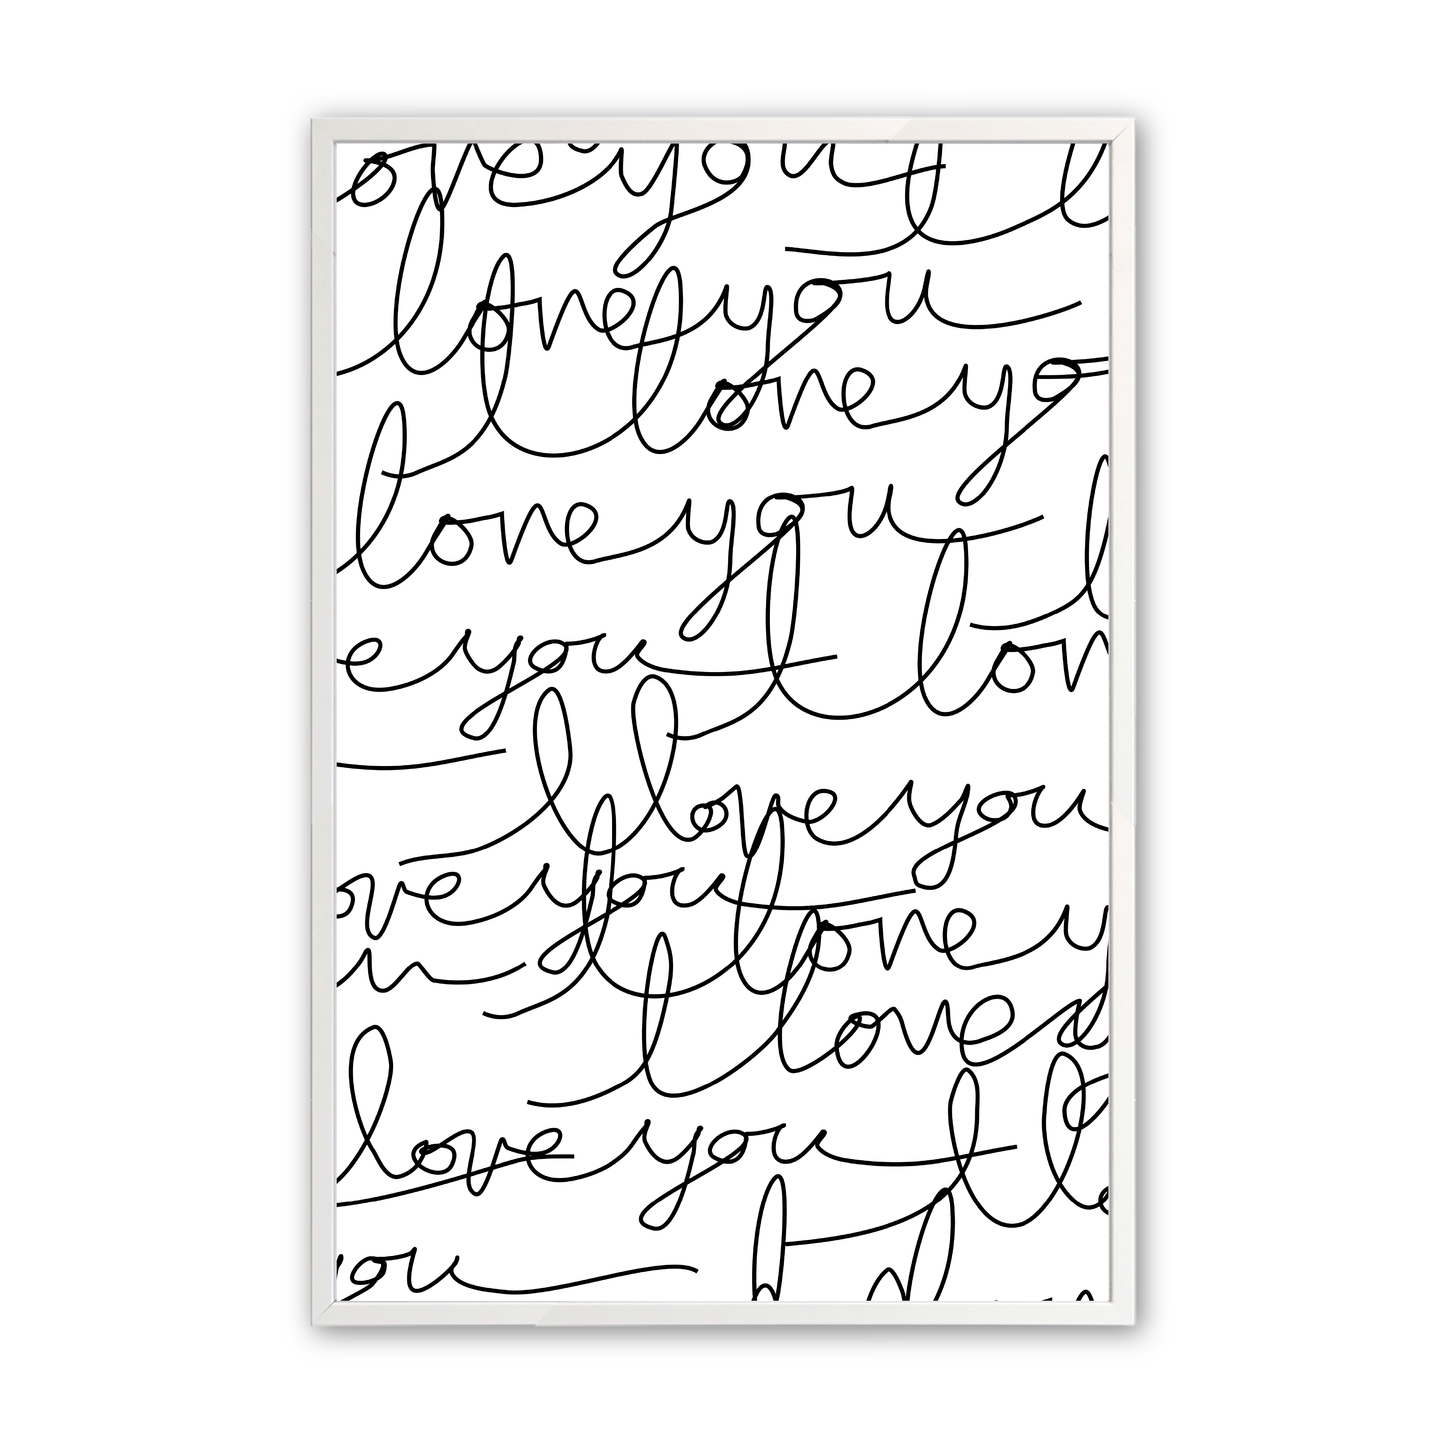 ove you I l
love you
I love yo
love you I
e you I lon
I love you
ove you
I love y
u I love
love you I lo
you I